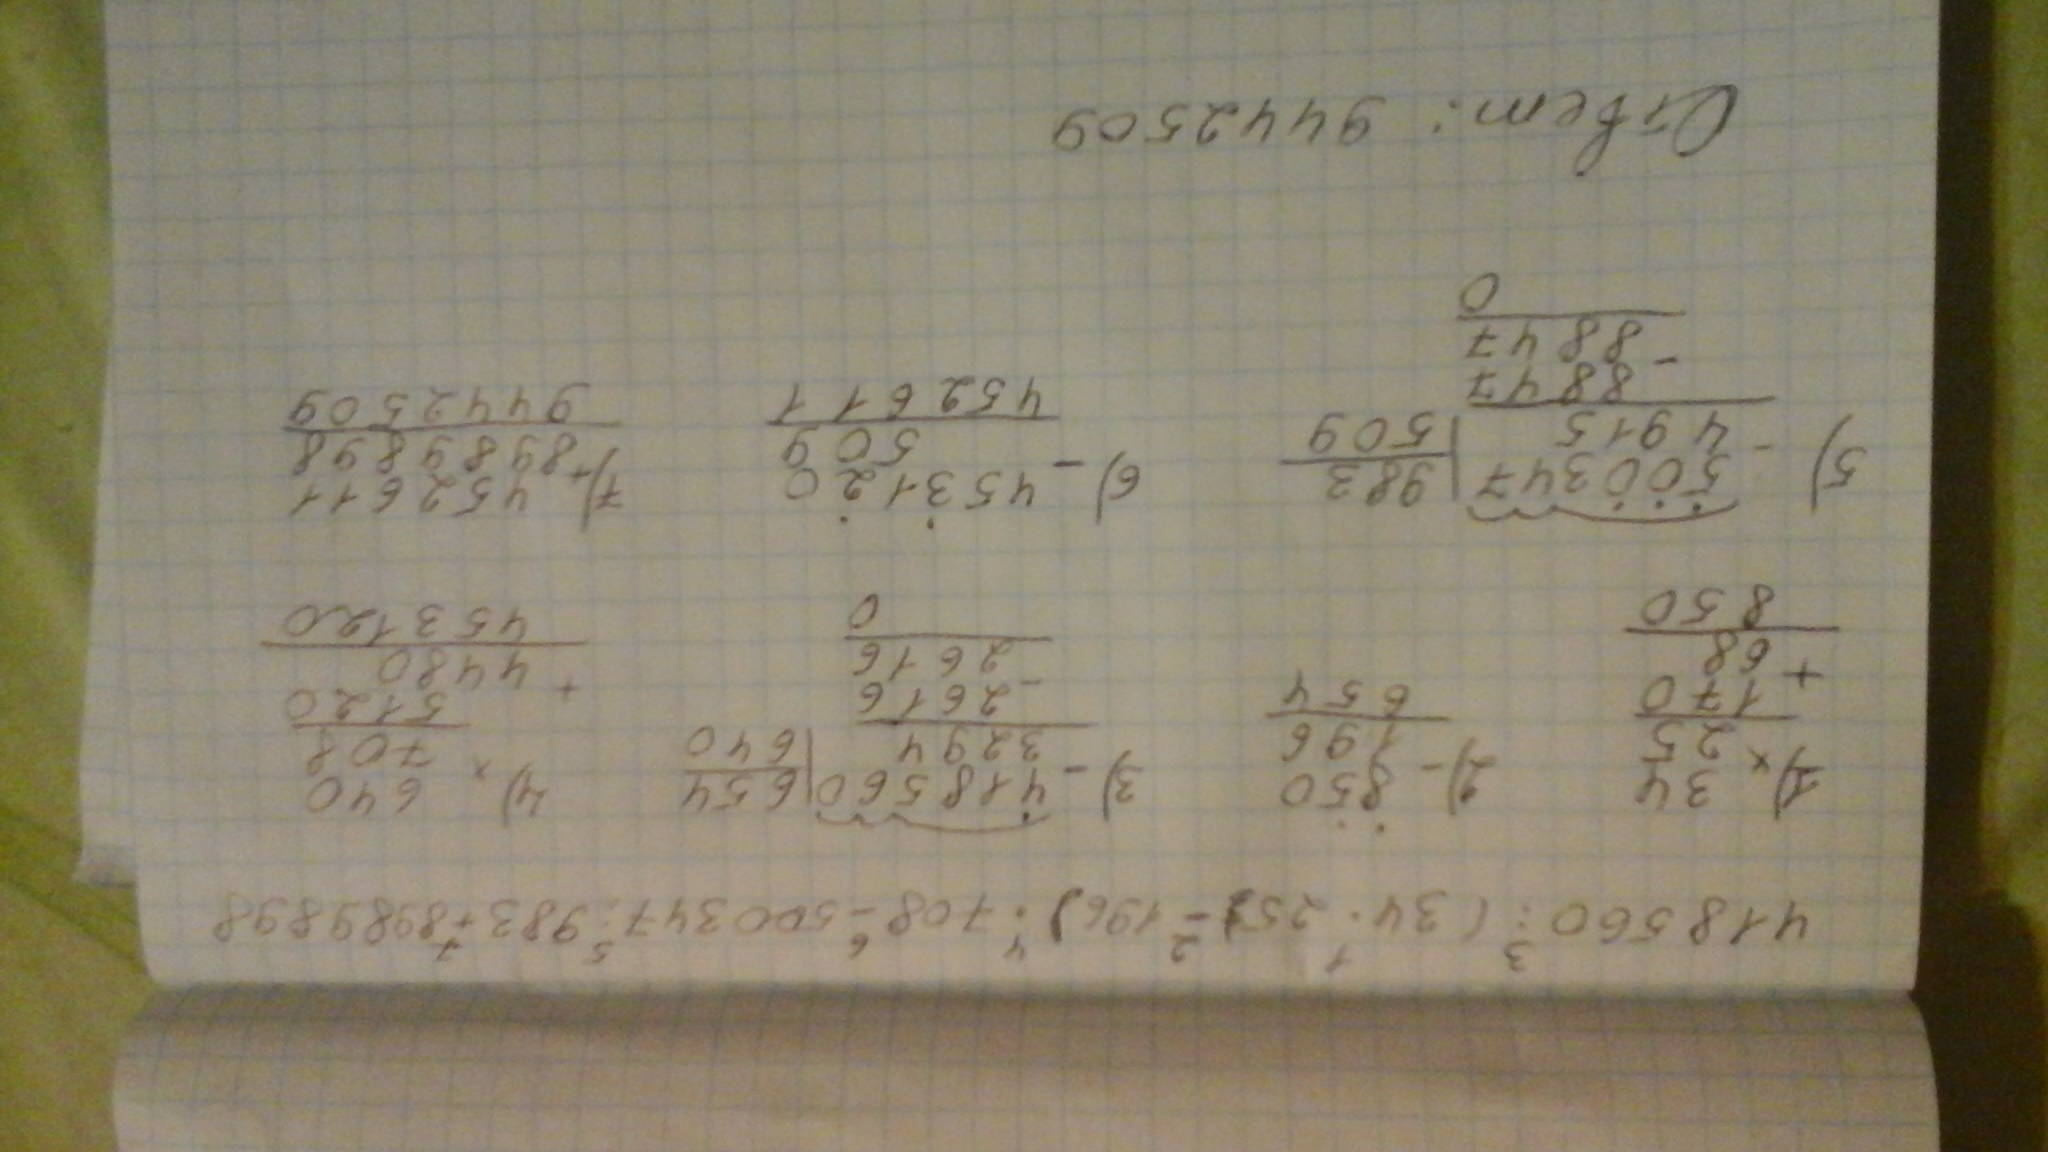 3 1 2 4 6 5 7
418560 : (34 · 25) - 196) · 708 - 500347 : 983 + 8989898
1) × 34
25
170
+ 68
850
2) - 850
196
654
3) - 418560 | 654
3294 | 640
- 2616
2616
0
4) × 640
708
5120
+ 4480
453120
5) - 500347 | 983
4915 | 509
- 8847
8847
0
6) - 453120
509
452611
7) + 452611
8989898
9442509
Ответ: 9442509